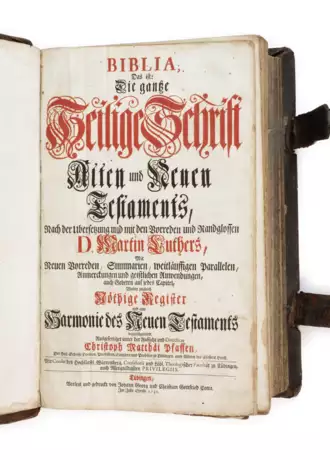 BIBLIA,
Das ist:
Die gantze
Heilige Schrift
Alten und Neuen
Testaments,
Nach der Ubersetzung und mit den Vorreden und Randglossen
D. Martin Luthers,
Mit
Neuen Vorreden, Summarien, weitläuffigen Parallelen,
Anmerckungen und geistlichen Anwendungen,
auch Gebeten auf jedes Capitel,
Wobey zugleich
Nöthige Register
und eine
Harmonie des Neuen Testaments
beygefüget
Ausgefertiget unter der Aufsicht und Direction
Christoph Matthäi Pfaffen,
Tübingen,
Verlegt und gedruckt von Johann Georg und Christian Gottfried Cotta.